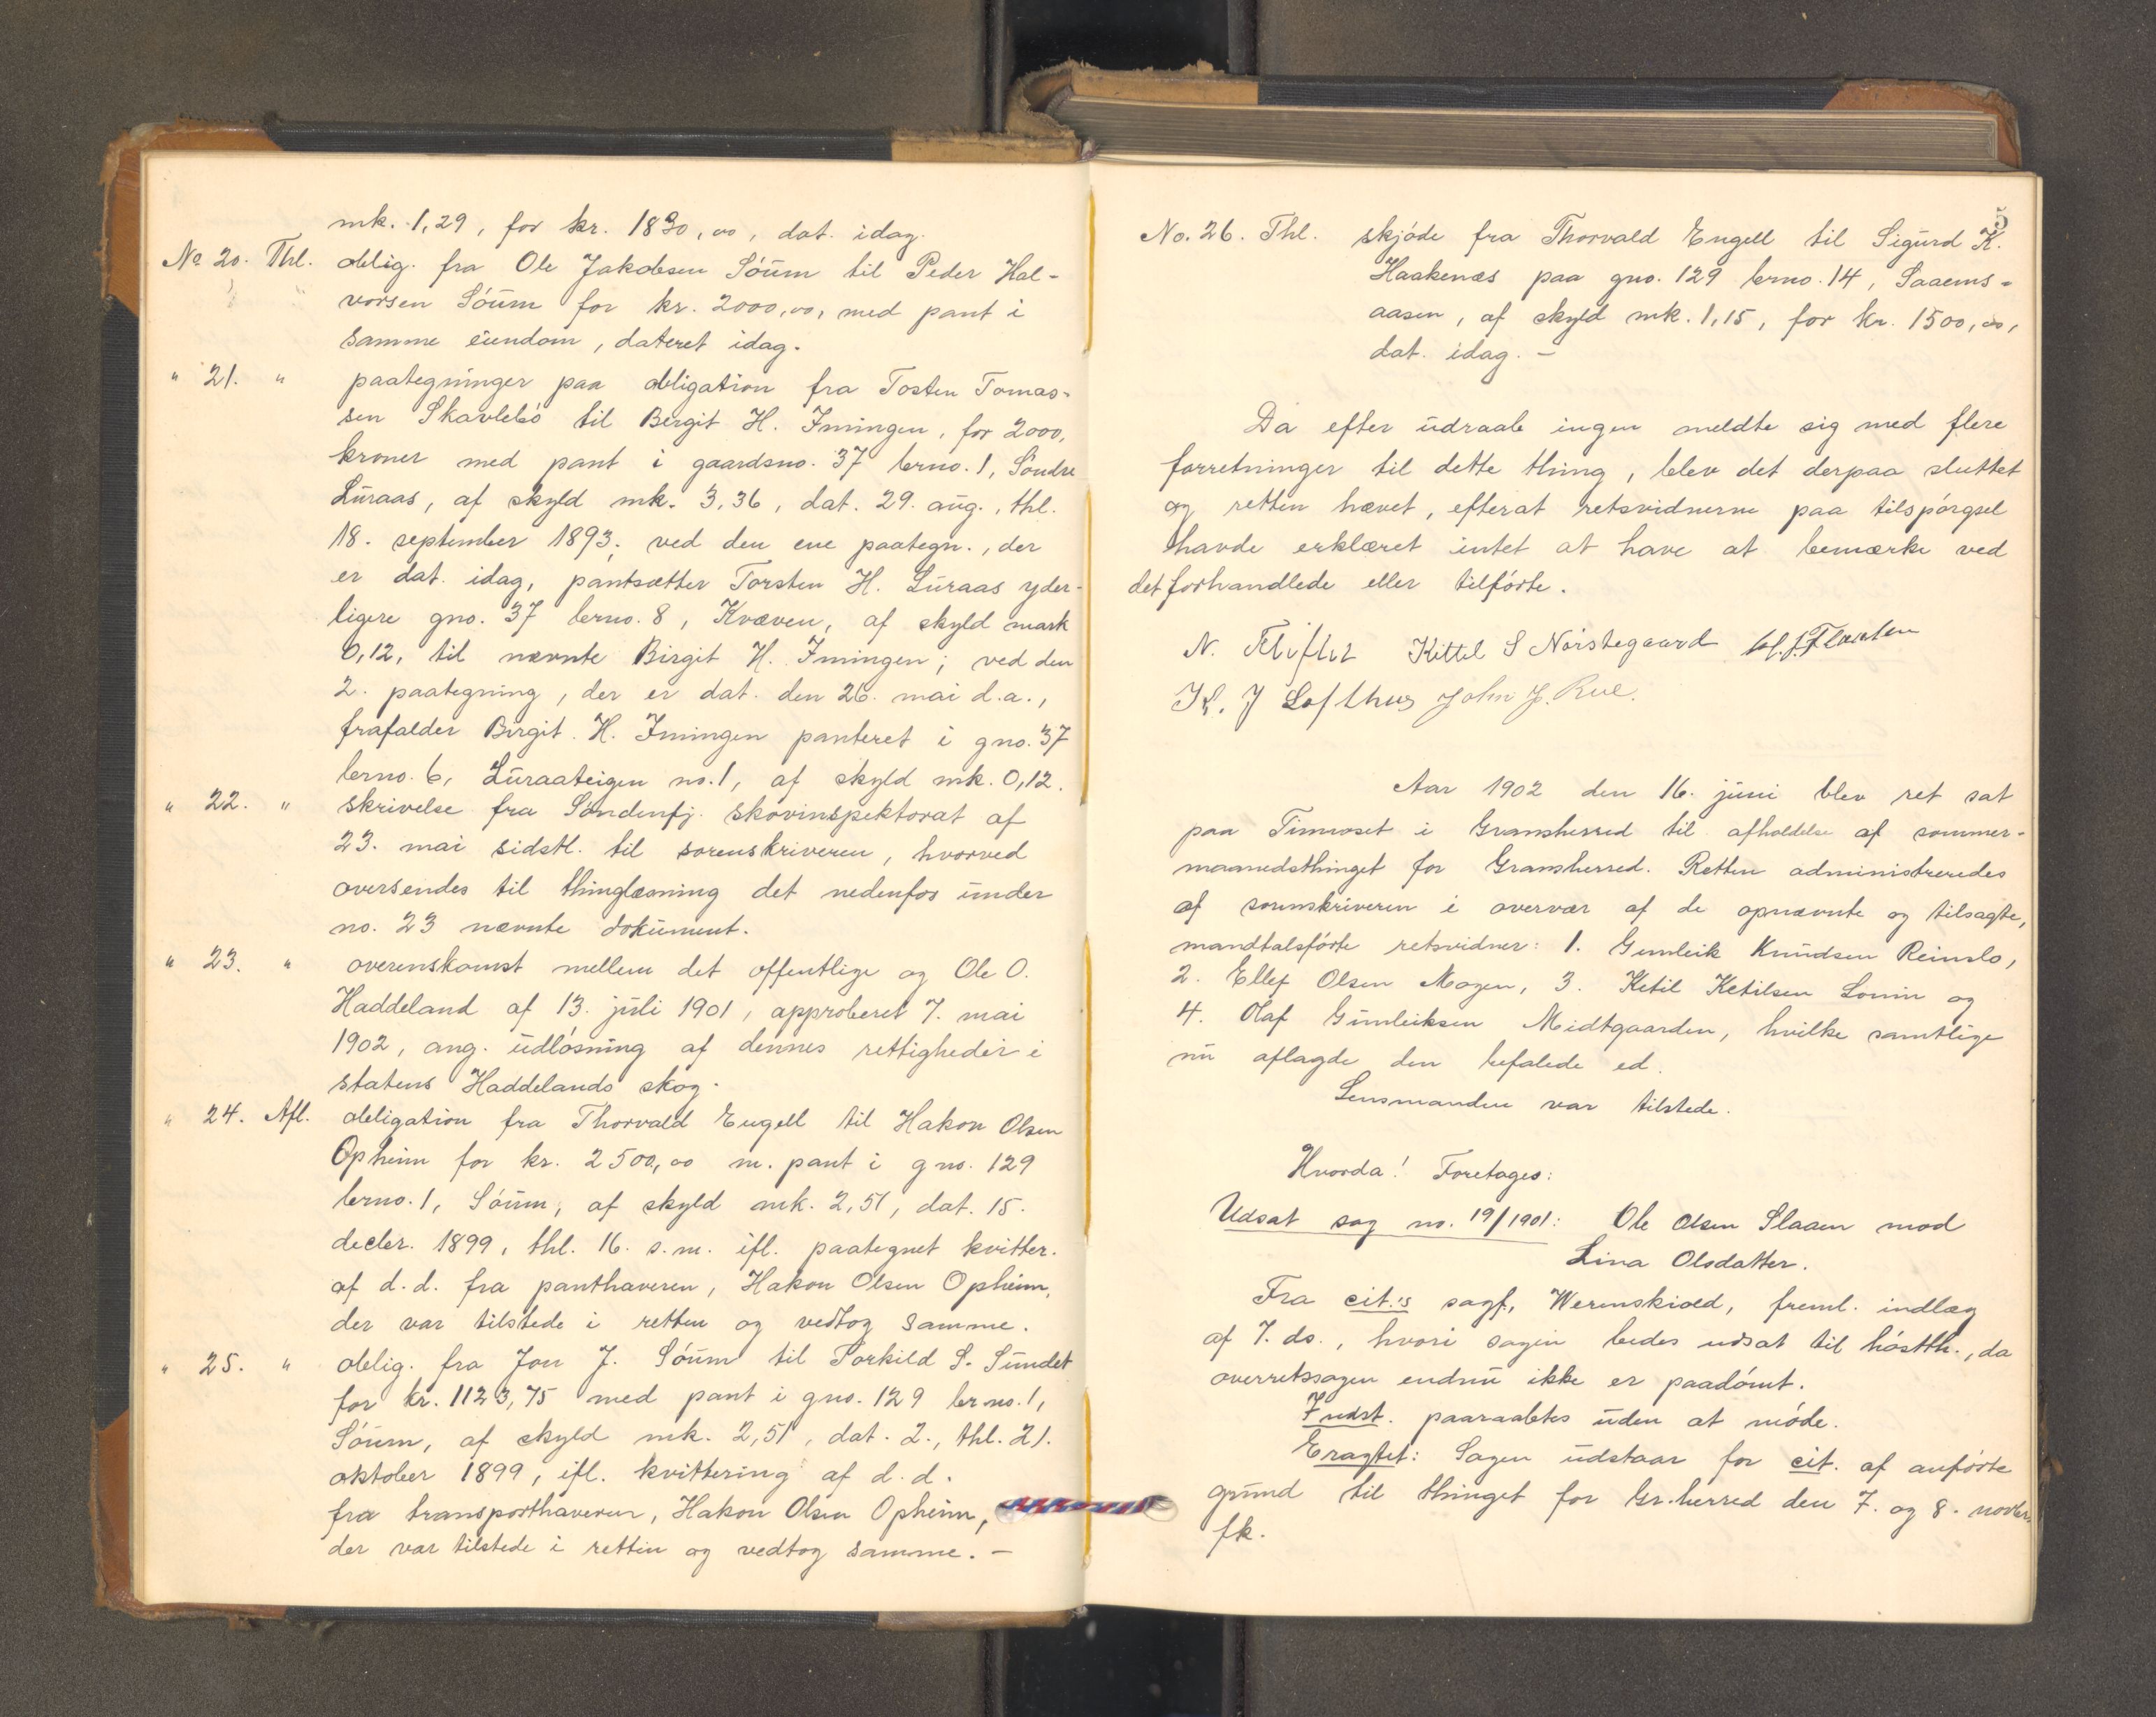 mk. 1,29, for kr. 1830,00, dat. idag.
No 20. Thl. oblig. fra Ole Jakobsen Sóum til Peder Hal-
vorsen Sóum for kr. 2000,00, med pant i
samme eiendom, dateret idag.
" 21. " paategninger paa obligation fra Tosten Tomas-
sen Skavlebó til Birgit H. Imingen, for 2000,
kroner med pant i gaardsno. 37 brno. 1, Söndre
Luraas, af skyld mk. 3,36, dat. 29. aug., thl.
18. september 1893; ved den ene paategn., der
er dat. idag, pantsætter Torsten H. Luraas yder-
ligere gno. 37 brno. 8, Kvæven, af skyld mark
0,12, til nævnte Birgit H. Imingen; ved den
2. paategning, der er dat. den 26. mai d.a.,
frafalder Birgit H. Imingen panteret i gno. 37
brno. 6, Luraateigen no. 1, af skyld mk. 0,12.
" 22. " skrivelse fra Söndenfj. skovinspektorat af
23. mai sidstl. til sorenskriveren, hvorved
oversendes til thinglæsning det nedenfor under
no. 23 nævnte dokument.
" 23. " overenskomst mellem det offentlige og Ole O.
Haddeland af 13. juli 1901, approberet 7. mai
1902, ang. udlósning af dennes rettigheder i
statens Haddelands skog.
" 24. Afl. obligation fra Thorvald Engell til Hakon Olsen
Opheim for kr. 2500,00 m. pant i gno. 129
brno. 1, Sóum, af skyld mk. 2,51, dat. 15.
decbr. 1899, thl. 16. s.m. ifl. paategnet kvitter.
af d.d. fra panthaveren, Hakon Olsen Opheim,
der var tilstede i retten og vedtog samme.
" 25. " oblig. fra Jon J. Sóum til Torkild S. Sundet
for kr. 1123,75 med pant i gno. 129 brno. 1,
Sóum, af skyld mk. 2,51, dat. 2., thl. 21.
oktober 1899, ifl. kvittering af d.d.
fra transporthaveren, Hakon Olsen Opheim,
der var tilstede i retten og vedtog samme. —
5
No. 26. Thl. skjóde fra Thorvald Engell til Sigurd K.
Haakenæs paa gno. 129 brno. 14, Saaems-
aasen, af skyld mk. 1,15, for kr. 1500,00,
dat. idag. —
Da efter udraab ingen meldte sig med flere
forretninger til dette thing, blev det derpaa sluttet
og retten hævet, efterat retsvidnerne paa tilspórgsel
havde erklæret intet at have at bemærke ved
det forhandlede eller tilfórte.
N. Kittel S Nórstegaard
K. J Lofthus John J. Rue.
Aar 1902 den 16. juni blev ret sat
paa Tinnoset i Gransherred til afholdelse af sommer-
maanedsthinget for Gransherred. Retten administreredes
af sorenskriveren i overvær af de opnævnte og tilsagte,
mandtalsfórte retsvidner: 1. Gunleik Knudsen Reinslo,
2. Ellef Olsen Mogen, 3. Ketil Ketilsen Lonin og
4. Olaf Gunleiksen Midtgaarden, hvilke samtlige
nu aflagde den befalede ed.
Lensmanden var tilstede.
Hvorda! Foretages:
Udsat sag no. 19/1901: Ole Olsen Slaaen mod
Lina Olsdatter.
Fra cit.'s sagf, Werenskiold, freml. indlæg
af 7. ds., hvori sagen bedes udsat til hóstth., da
overretssagen endnu ikke er paadómt.
Indst. paaraabtes uden at móde.
Eragtet: Sagen udstaar for cit. af anfórte
grund til thinget for Gr.herred den 7. og 8. novbr.
fk.